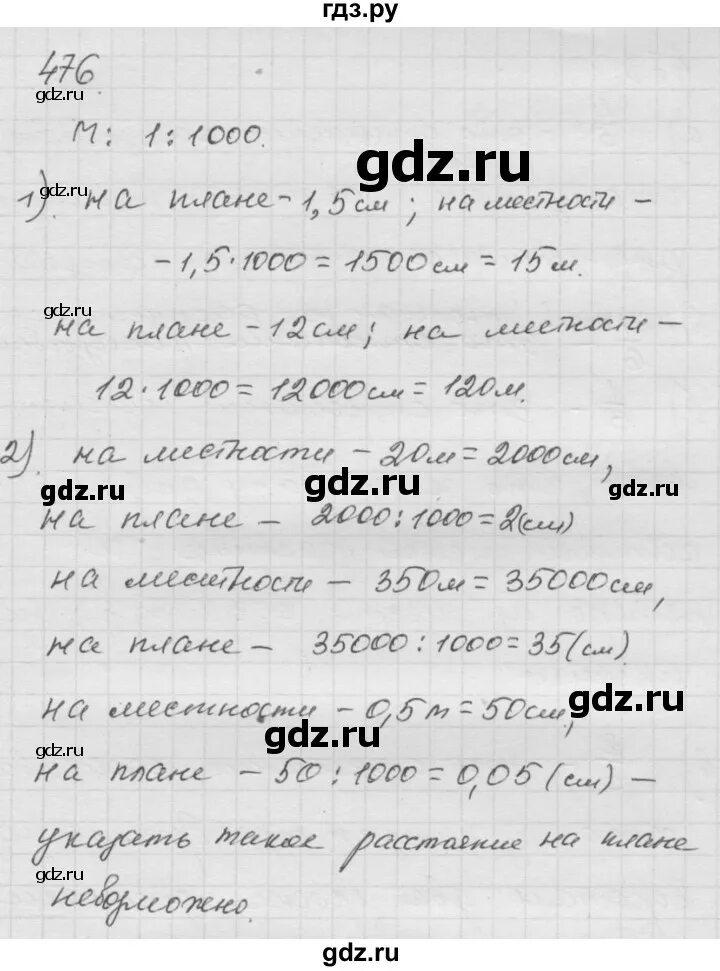 гдз.ру
476.
gdz.ru
М: 1:1000.
gdz.ru
gdz.ru
1). на плане - 1,5 см; на местности -
- 1,5·1000 = 1500 см = 15 м.
gdz.ru
gdz.ru
на плане - 12 см; на местности -
gdz.ru
12·1000 = 12000 см = 120 м.
2). на местности - 20 м = 2000 см,
gdz.ru
gdz.ru
gdz.ru
на плане - 2000:1000 = 2 (см)
на местности - 350 м = 35000 см,
на плане - 35000:1000 = 35 (см).
gdz.ru
на местности - 0,5 м = 50 см,
gdz.ru
gdz.ru
на плане - 50:1000 = 0,05 (см) -
указать такое расстояние на плане
gdz.ru
невозможно.
gdz.ru
gdz.ru